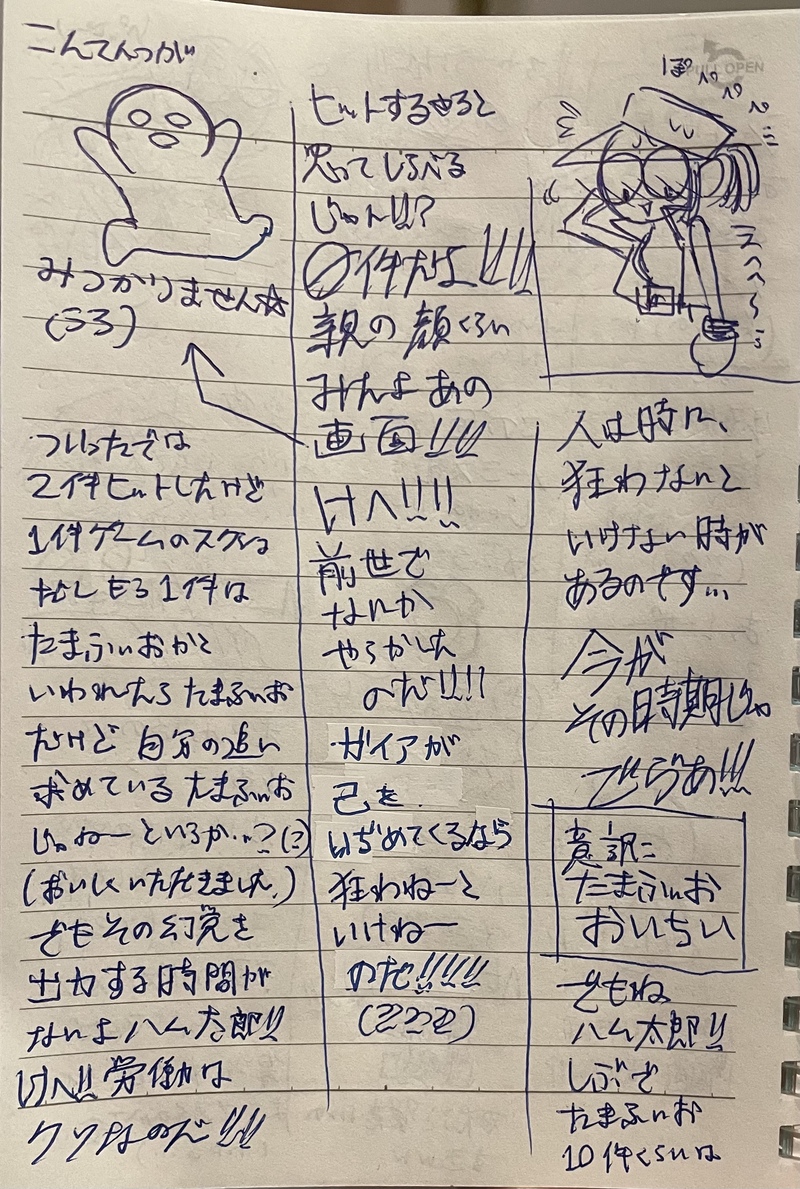 こんてんつが
みつかりません☆
(うろ)
ついったでは
2件ヒットしたけど
1件ゲームのスクショ
だしもう1件は
たまふぃおかと
いわれたらたまふぃお
だけど自分の追い
求めているたまふぃお
じゃねーというか…?(?)
(おいしくいただきました。)
でもその幻覚を
出力する時間が
ないよハム太郎!!
けへ!!労働は
クソなのだ!!!
ヒットするやろと
思ってしらべる
じゃん!!?
0件だよ!!!
親の顔くらい
みたよあの
画面!!!
けへ!!!!
前世で
なんか
やらかした
のだ!!!!
ガイアが
己を
いぢめてくるなら
狂わねーと
いけねー
のだ!!!!!
PULL OPEN
ぽぺぺぺ
えへへ
人は時に、
狂わないと
いけない時が
あるのです…
今が
その時期じゃ
でらぁ!!!
意訳:
たまふぃお
おいちい
でもね
ハム太郎!!
しぶで
たまふぃお
10件くらいは